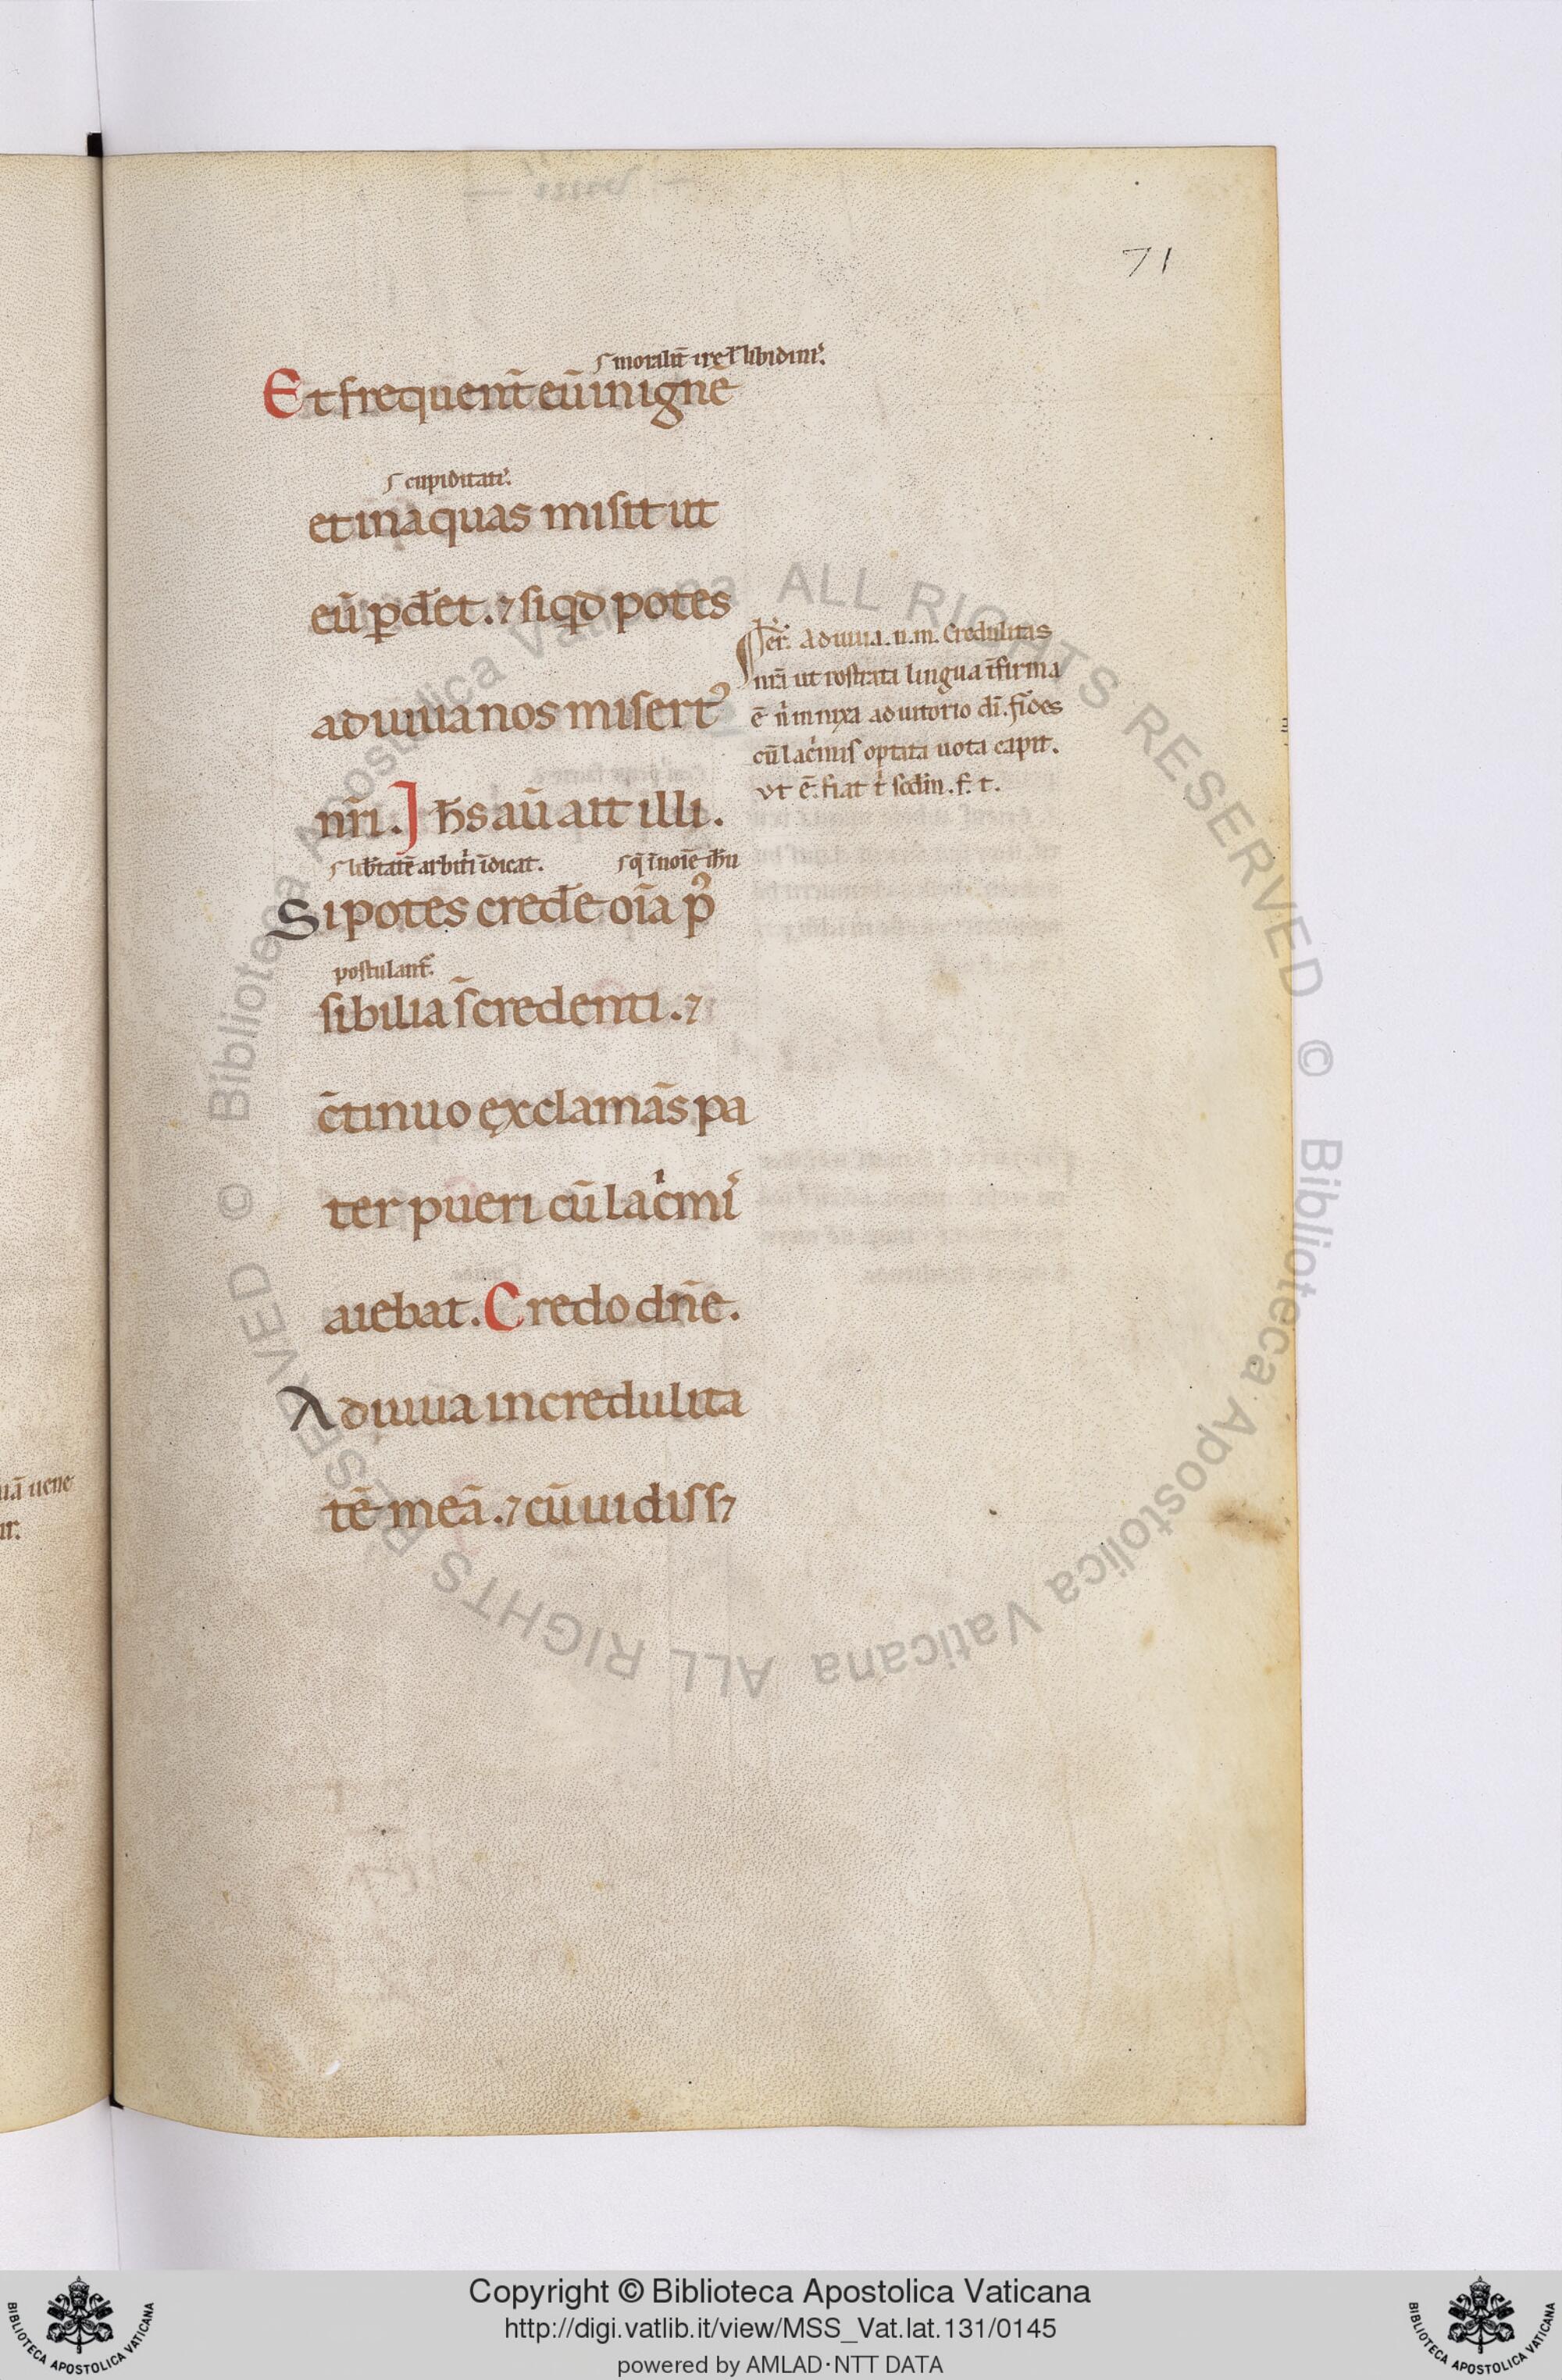 71
ſ moralit̄ irę ł libidiniˢ.
Et frequent̄ eū in ignē
ſ cupiditatiˢ.
et in aquas misit ut
eū ꝑd̄et. ⁊ siqd potes
adiuua nos misert᾿
nr̄i. Ihs̄ aū ait illi.
ſ lib̄tatē arbit̓i īdicat. ſ q̄ ī noīe ih̄u
Si potes cred̄e oīa p᾿
postulant᾿.
sibilia s̄ credenti. ⁊
c̄tinuo exclamās pa
ter pueri cū lac̓miˢ
aiebat. Credo dn̄e.
Adiuua incredulita
tē meā. ⁊ cū uidiss⁊
Ier̄. Adiuua. n. m. Credulitas
nrā ut rostrata lingua īfirma
ē n̓ innixa adiutorio di̅. fides
cū lac̓mis optata uota capit.
Vt ē. fiat t̓ scd̄m. f. t.
uā uene
ur.
© Biblioteca Apostolica Vaticana ALL RIGHTS RESERVED © Biblioteca Apostolica Vaticana ALL RIGHTS RESERVED
Copyright © Biblioteca Apostolica Vaticana
http://digi.vatlib.it/view/MSS_Vat.lat.131/0145
powered by AMLAD·NTT DATA
BIBLIOTECA APOSTOLICA VATICANA
BIBLIOTECA APOSTOLICA VATICANA